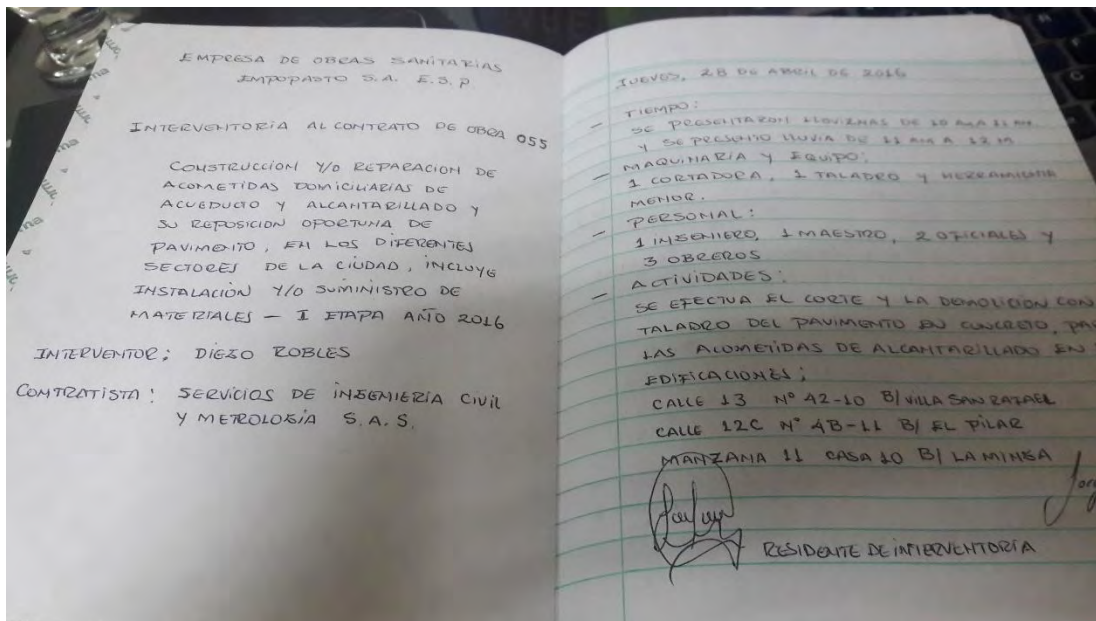 EMPRESA DE OBRAS SANITARIAS
EMPOPASTO S.A. E.S.P
INTERVENTORIA AL CONTRATO DE OBRA 055
CONSTRUCCION Y/O REPARACION DE
ACOMETIDAS DOMICILIARIAS DE
ACUEDUCTO Y ALCANTARILLADO Y
SU REPOSICION OPORTUNA DE
PAVIMENTO, EN LOS DIFERENTES
SECTORES DE LA CIUDAD, INCLUYE
INSTALACIÓN Y/O SUMINISTRO DE
MATERIALES - I ETAPA AÑO 2016
INTERVENTOR: DIEGO ROBLES
CONTRATISTA: SERVICIOS DE INGENIERIA CIVIL
Y METROLOGIA S.A.S.
JUEVES, 28 DE ABRIL DE 2016
- TIEMPO:
SE PRESENTARON LLOVIZNAS DE 10 AM A 11 AM
Y SE PRESENTO LLUVIA DE 11 AM A 12 M
- MAQUINARIA Y EQUIPO:
1 CORTADORA, 1 TALADRO Y HERRAMIENTA
MENOR.
- PERSONAL:
1 INGENIERO, 1 MAESTRO, 2 OFICIALES Y
3 OBREROS
- ACTIVIDADES:
SE EFECTUA EL CORTE Y LA DEMOLICION CON
TALADRO DEL PAVIMENTO EN CONCRETO, PA
LAS ACOMETIDAS DE ALCANTARILLADO EN
EDIFICACIONES:
CALLE 13 Nº 42-10 B/ VILLA SAN RAFAEL
CALLE 12C Nº 4B-11 B/ EL PILAR
MANZANA 11 CASA 10 B/ LA MINGA
RESIDENTE DE INTERVENTORÍA